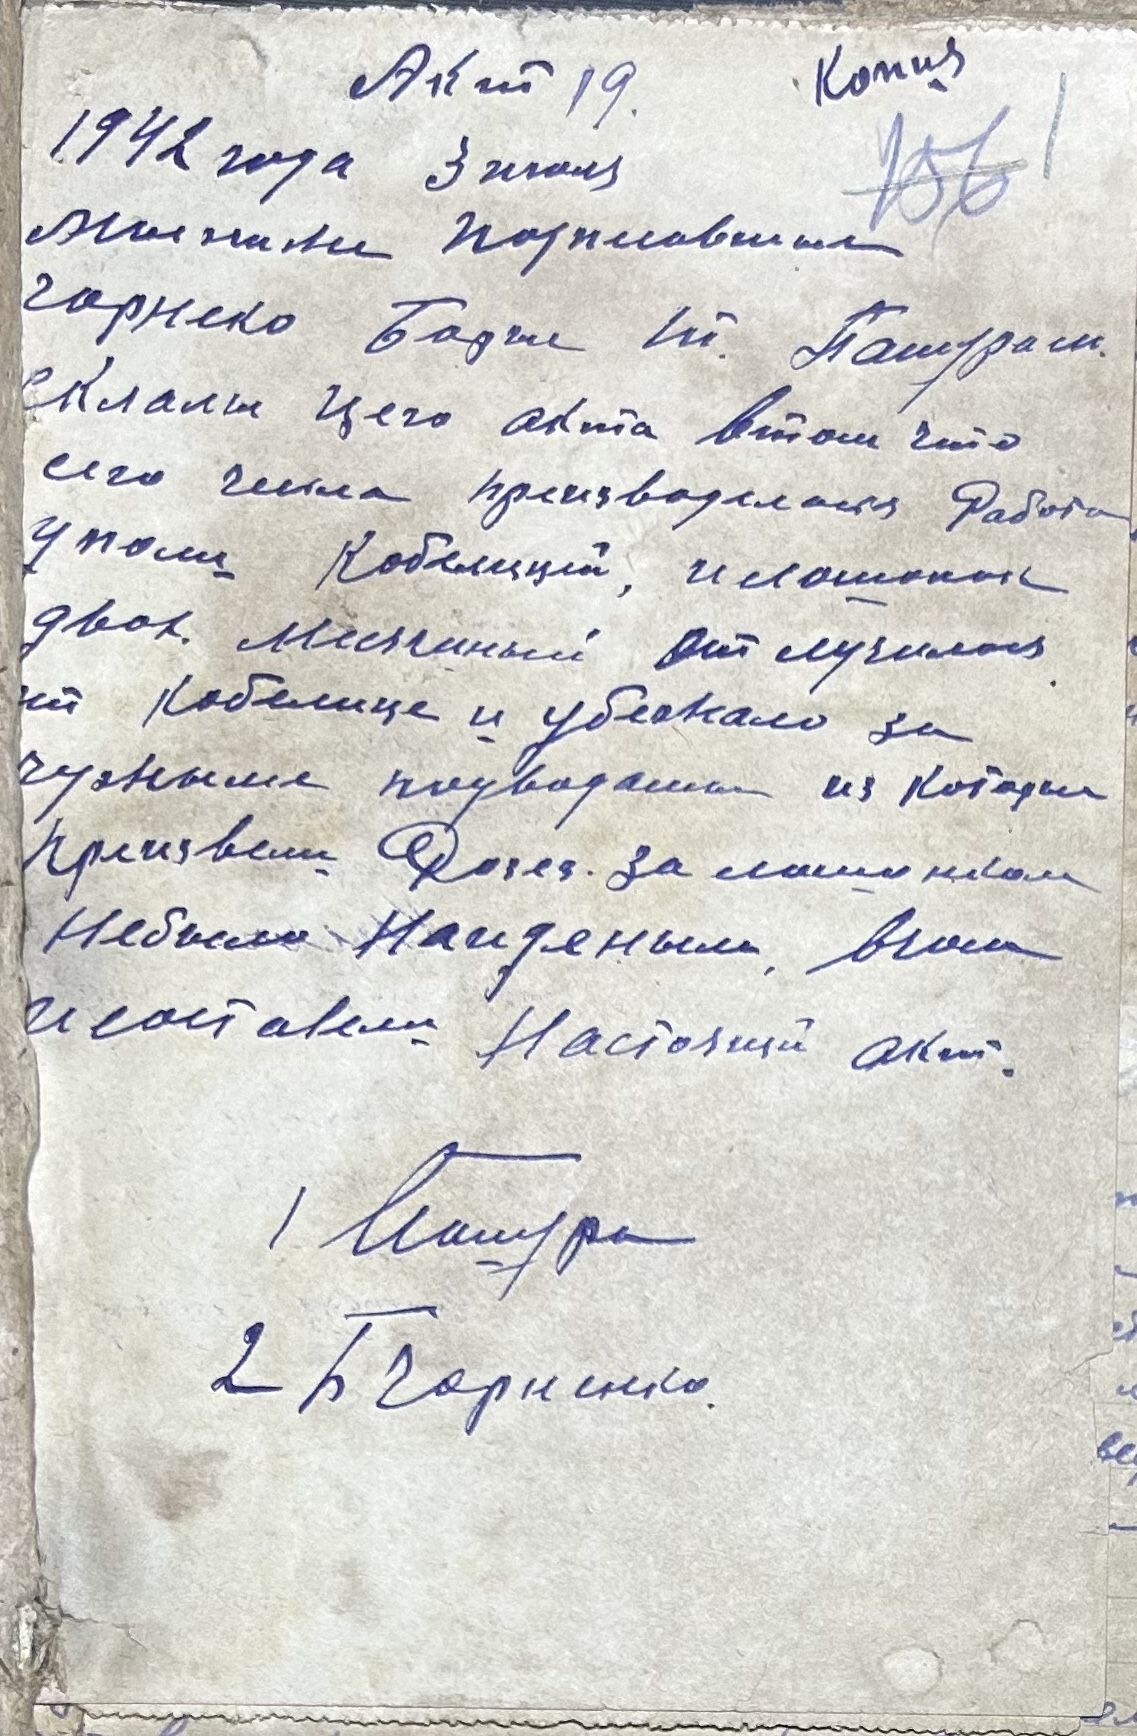 Акт 19. Копия
156
1942 года 3 июля
Мы ниже подписавшиеся
Чорнеко Борис т. Пашура т.
склали цего акта втом что
сего числа преизводелася Работа
у поли Кобелицей, и лошонок
двох. мисячный отлучился
от Кобелице и убежало за
чужыми подводами из которых
преизвели Розез. за лошонком
Небыло Найденым, в чом
и составели Настоящий акт.
1 Пашура
2 Б Чорненко.